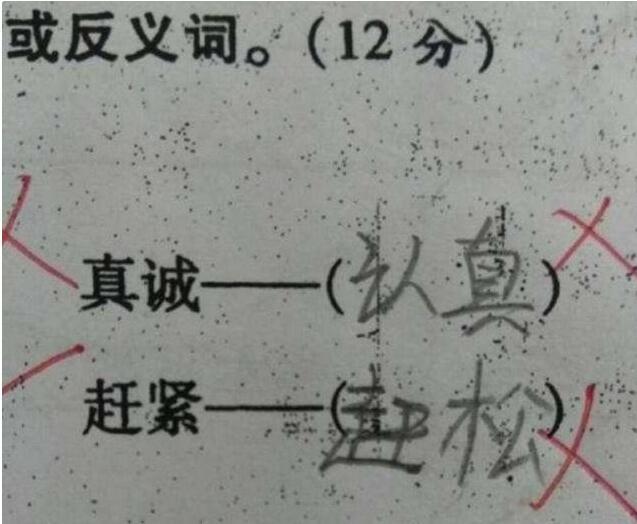 或反义词。(12 分)
真诚——(认真)
赶紧——(赶松)